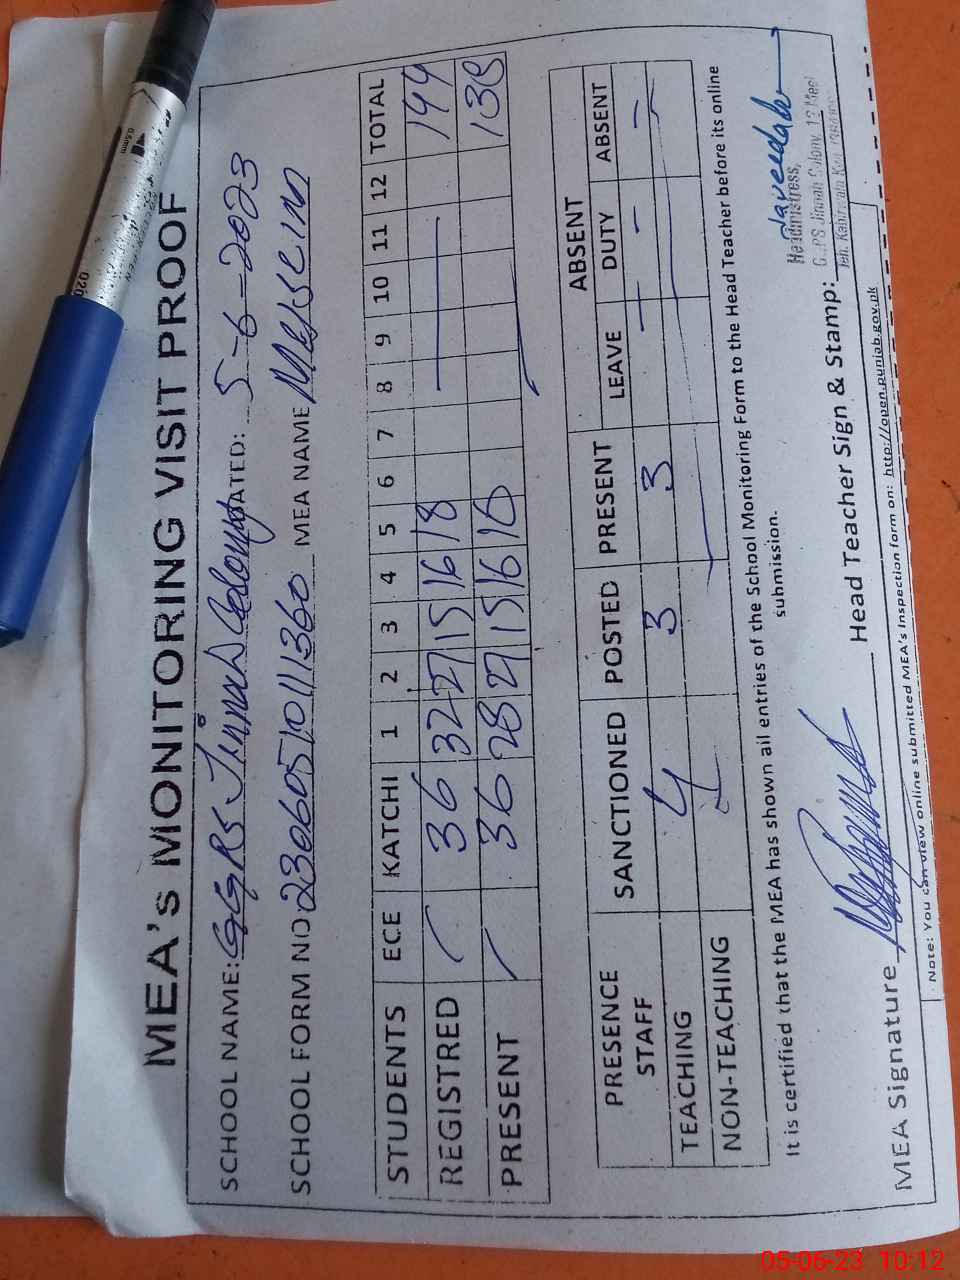 MEA's MONITORING VISIT PROOF
SCHOOL NAME: GGPS Jinnah Colony DATED: 5-6-2023
SCHOOL FORM NO 2306051011360 MEA NAME Mohsin
STUDENTS ECE KATCHI 1 2 3 4 5 6 7 8 9 10 11 12 TOTAL
REGISTRED 36 32 27 15 16 18 144
PRESENT 36 28 27 15 16 16 138
PRESENCE SANCTIONED POSTED PRESENT ABSENT
STAFF LEAVE DUTY ABSENT
TEACHING 4 3 3 - - -
NON-TEACHING
It is certified that the MEA has shown all entries of the School Monitoring Form to the Head Teacher before its online
submission.
Headmistress,
G.G.PS Jinnah Colony, 12 Meel
Teh. Kabirwala
MEA Signature Head Teacher Sign & Stamp:
Note: You can view online submitted MEA's Inspection form on: http://open.punjab.gov.pk
0.5mm
05-06-23 10:12